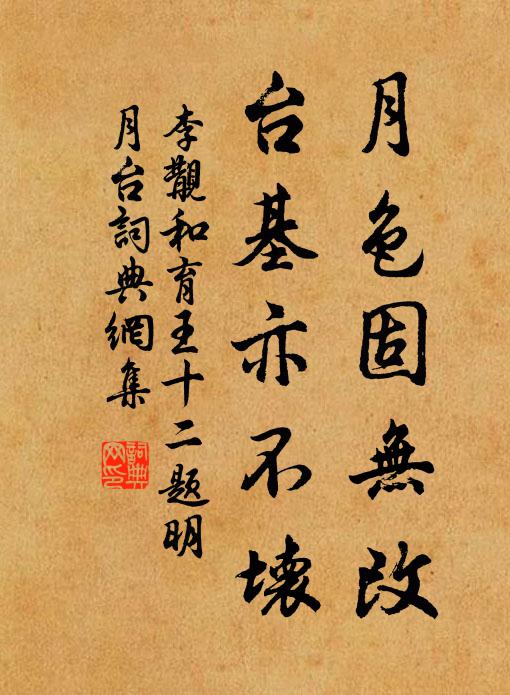 月色固無改
台基亦不壞
李覯和育王十二題明
月台詞典網集
詞典网印